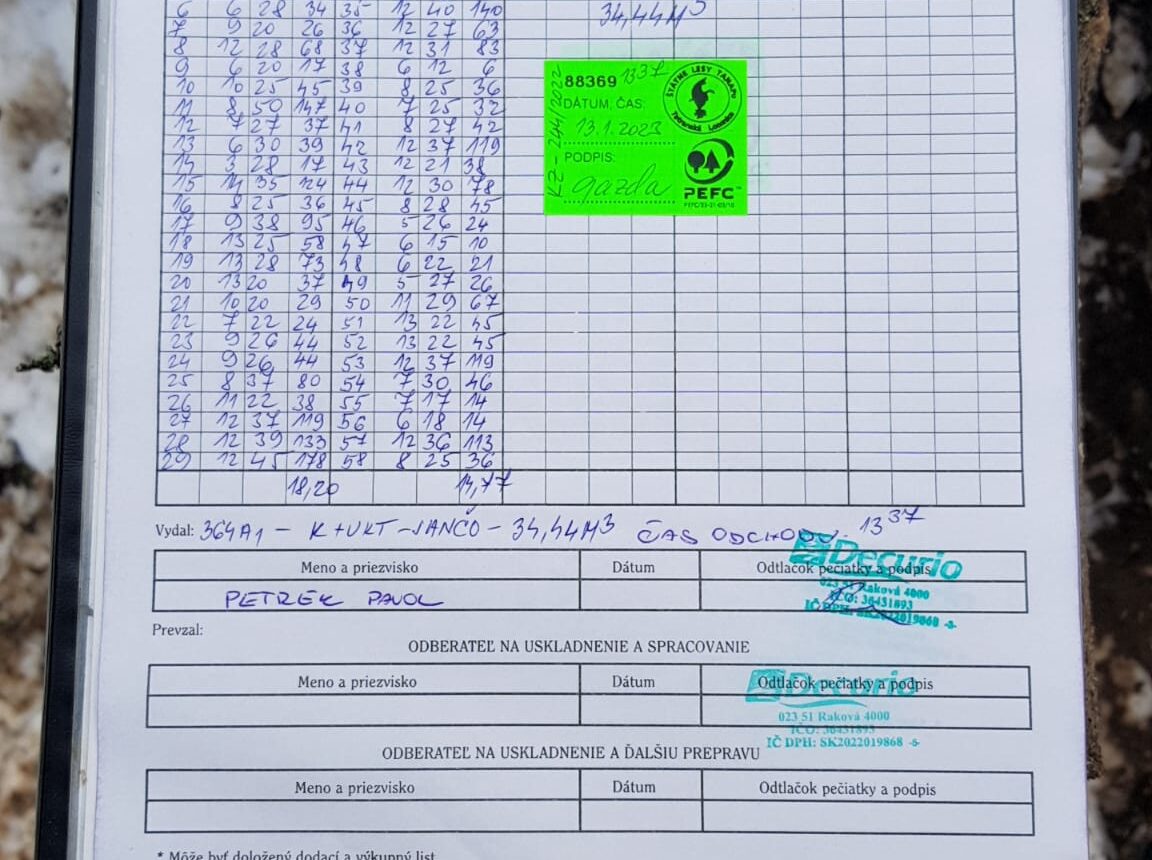 6 6 28 34 35 12 40 140
34,44M3
7 9 20 26 36 12 27 63
8 12 28 68 37 12 31 83
9 6 20 17 38 6 12 6
10 10 25 45 39 8 25 36
11 8 50 147 40 7 25 32
12 7 27 37 41 8 27 42
13 6 30 39 42 12 37 119
14 3 28 17 43 12 21 38
15 14 35 124 44 12 30 78
16 8 25 36 45 8 28 45
17 9 38 95 46 5 26 24
18 13 25 58 47 6 15 10
19 13 28 73 48 6 22 21
20 13 20 37 49 5 27 26
21 10 20 29 50 11 29 67
22 7 22 24 51 13 22 45
23 9 26 44 52 13 22 45
24 9 26 44 53 12 37 119
25 8 37 80 54 7 30 46
26 11 22 38 55 7 17 14
27 12 37 119 56 6 18 14
28 12 39 133 57 12 36 113
29 12 45 178 58 8 25 36
18,20 14,77
88369 1337
DÁTUM, ČAS:
13.1.2023
PODPIS:
gazda
KZ - 244/2022
ŠTÁTNE LESY TANAPU
Tatranská Lomnica
PEFC
Vydal: 364A1 - K+UKT-JANČO - 34,44M3 ČAS ODCHODU. 1337
Decurio
Meno a priezvisko Dátum Odtlačok pečiatky a podpis
023 51 Raková 4000
PETREK PAVOL
IČO: 36431893
IČ DPH: SK2022019868 -8-
Prevzal:
ODBERATEĽ NA USKLADNENIE A SPRACOVANIE
Decurio
Meno a priezvisko Dátum Odtlačok pečiatky a podpis
023 51 Raková 4000
IČO: 36431893
IČ DPH: SK2022019868 -8-
ODBERATEĽ NA USKLADNENIE A ĎALŠIU PREPRAVU
Meno a priezvisko Dátum Odtlačok pečiatky a podpis
* Môže byť doložený dodací a výkupný list